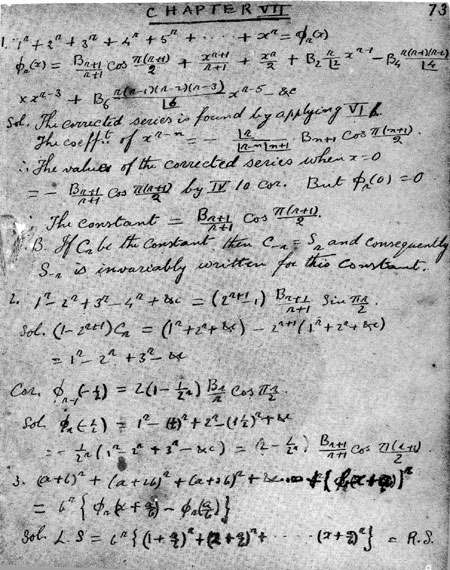 CHAPTER VII 73
1. 1^n + 2^n + 3^n + 4^n + 5^n + ..... + x^n = φ_n(x)
φ_n(x) = B_{n+1}/(n+1) cos π(n+1)/2 + x^{n+1}/(n+1) + x^n/2 + B_2 n/⌊2 x^{n-1} - B_4 n(n-1)(n-2)/⌊4
× x^{n-3} + B_6 n(n-1)(n-2)(n-3)/⌊6 x^{n-5} - &c
Sol. The corrected series is found by applying VI
The coefft. of x^{n-n} = - ⌊n/(⌊n-n ⌊n+1) B_{n+1} cos π(n+1)/2.
∴ The value of the corrected series when x=0
= - B_{n+1}/(n+1) cos π(n+1)/2 by IV 10 cor. But φ_n(0) = 0
∴ The constant = B_{n+1}/(n+1) cos π(n+1)/2.
B. If C_n be the constant then C_{-n} = S_n and consequently
S_{-n} is invariably written for this constant.
2. 1^n - 2^n + 3^n - 4^n + &c = (2^{n+1} - 1) B_{n+1}/(n+1) sin πn/2.
Sol. (1 - 2^{n+1}) C_n = (1^n + 2^n + &c) - 2^{n+1}(1^n + 2^n + &c)
= 1^n - 2^n + 3^n - &c
Cor. φ_{n-1}(-1/2) = 2(1 - 1/2^n) B_n/n cos πn/2.
Sol φ_n(-1/2) = 1^n - (1/2)^n + 2^n - (1 1/2)^n + &c
= - 1/2^n (1^n - 2^n + 3^n - &c) = (2 - 1/2^n) B_{n+1}/(n+1) cos π(n+1)/2.
3. (a+b)^n + (a+2b)^n + (a+3b)^n +
= b^n {φ_n(x + a/b) - φ_n(a/b)}
Sol. L.S = b^n {(1 + a/b)^n + (2 + a/b)^n + ..... (x + a/b)^n} = R.S.